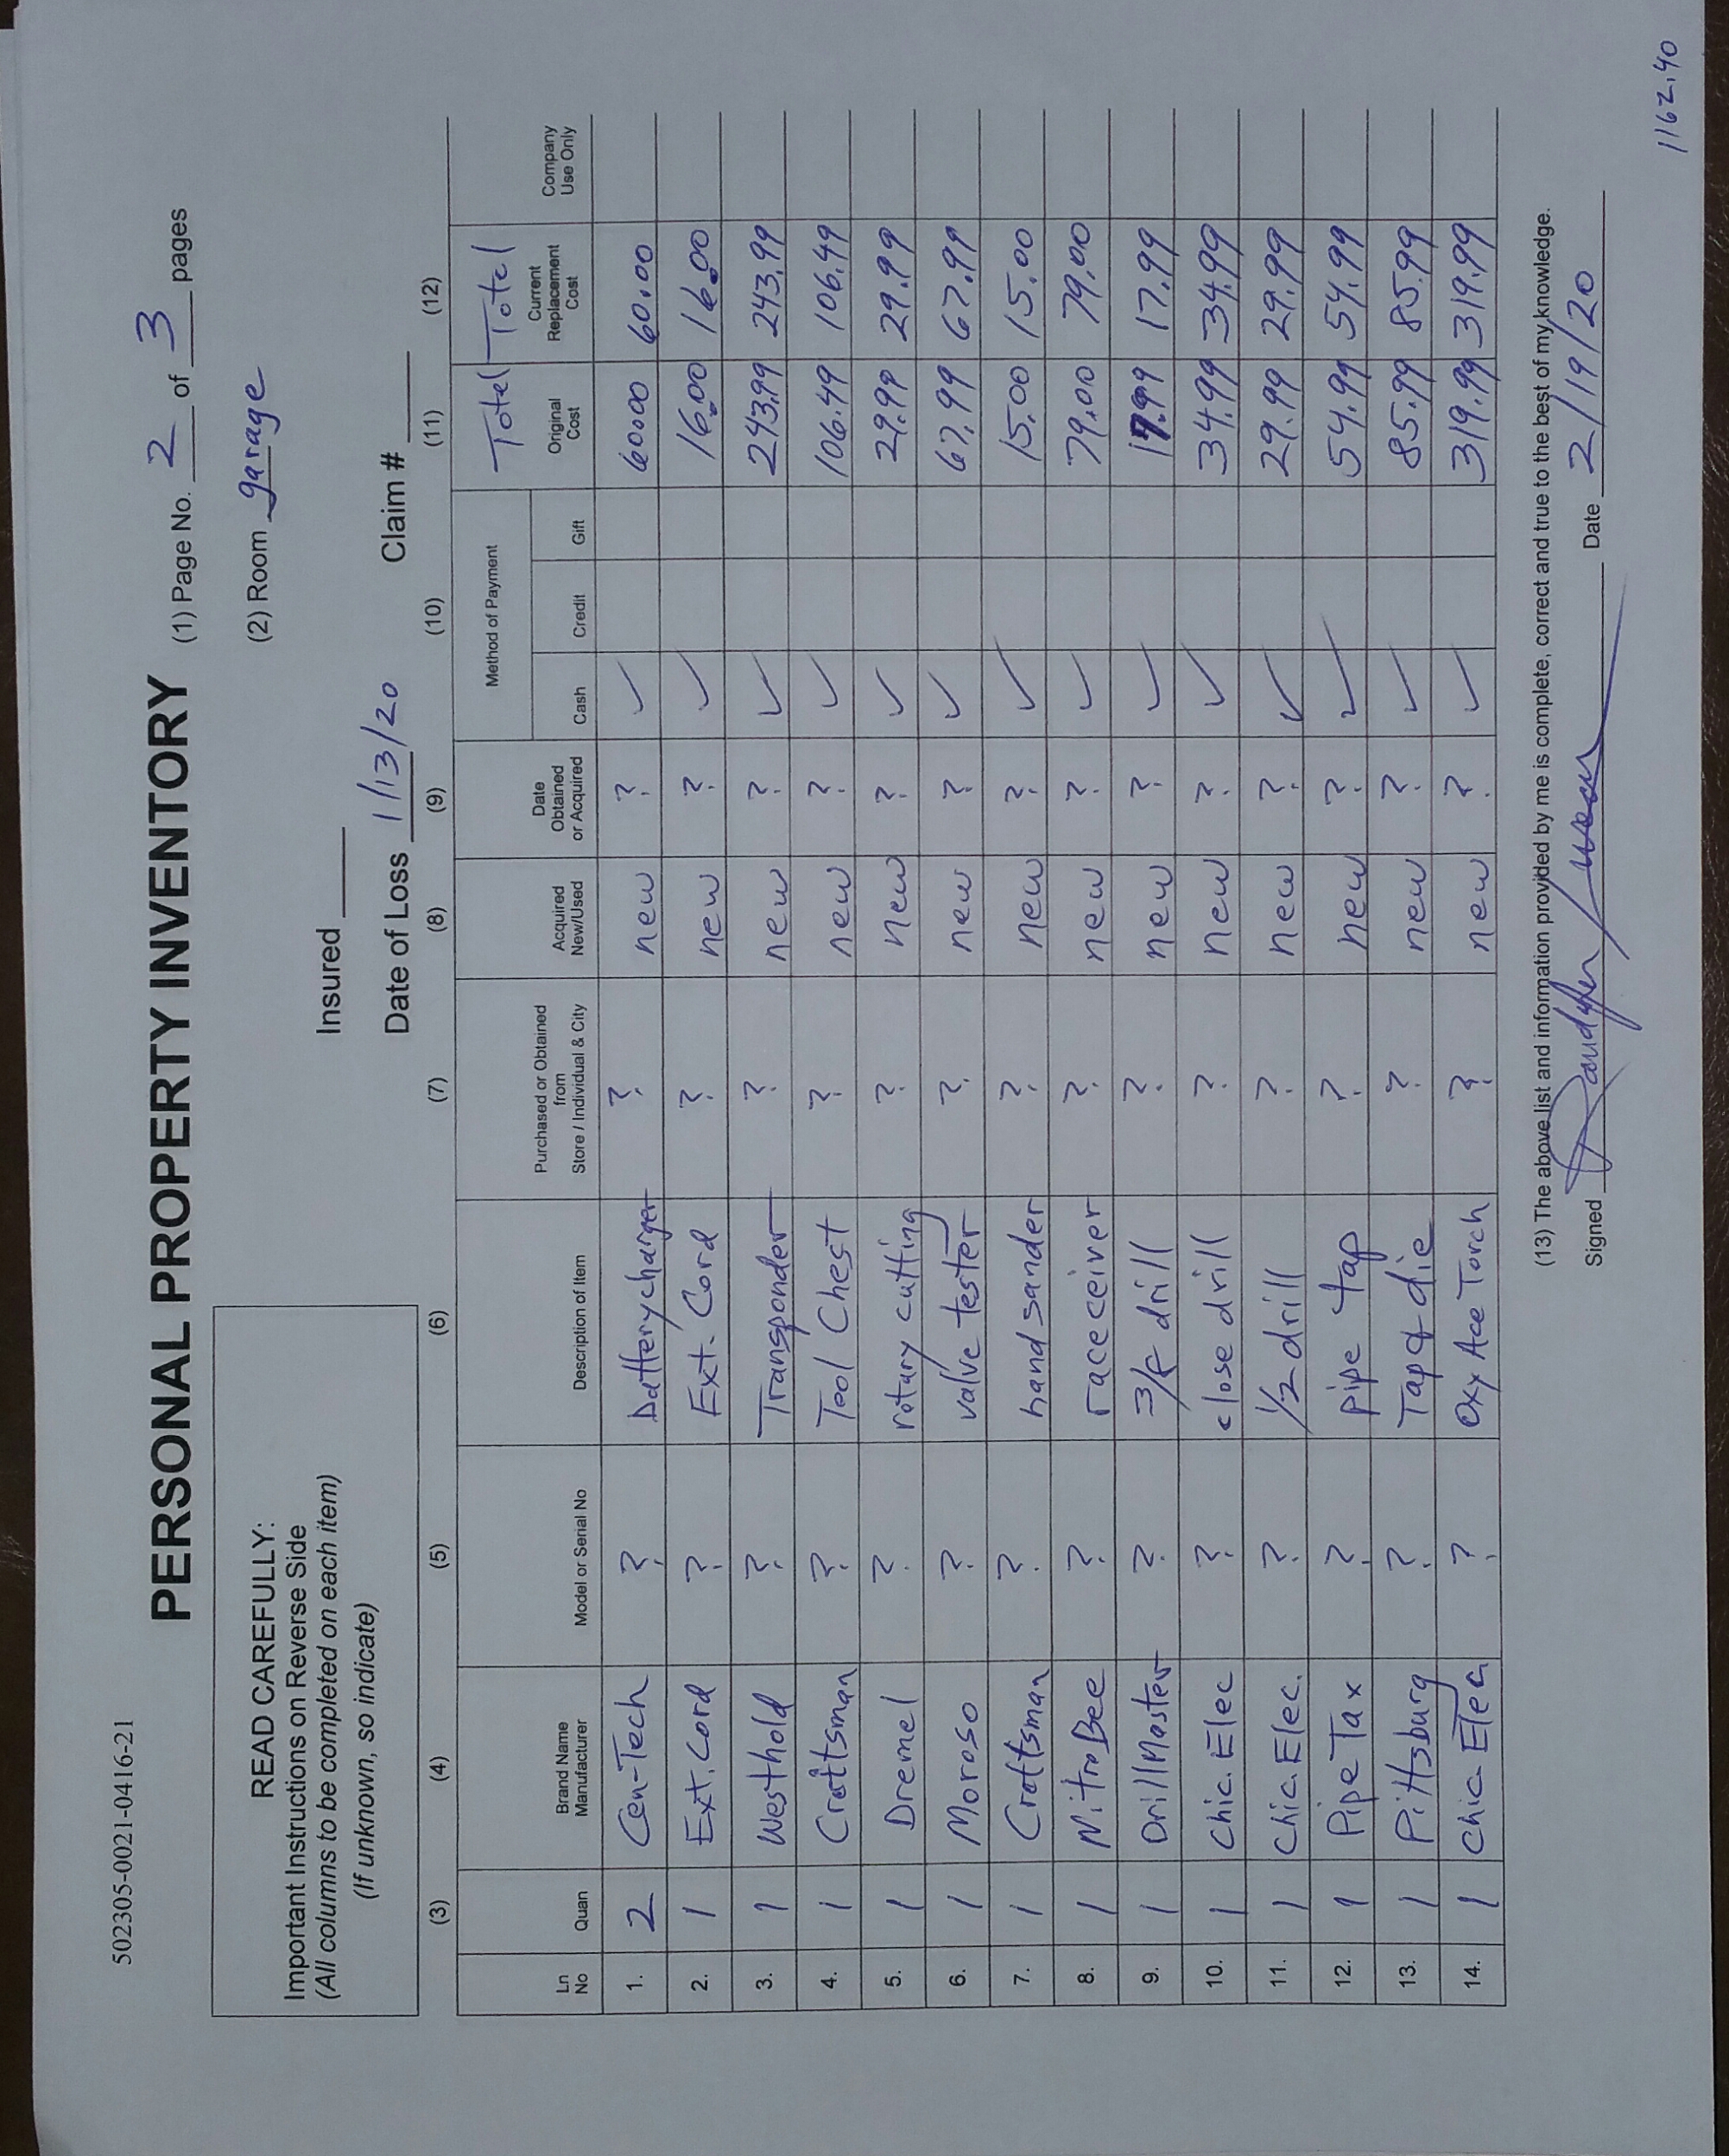 502305-0021-0416-21
PERSONAL PROPERTY INVENTORY
(1) Page No. 2 of 3 pages
READ CAREFULLY:
Important Instructions on Reverse Side
(All columns to be completed on each item)
(If unknown, so indicate)
(2) Room garage
Insured
Date of Loss 1/13/20 Claim #
(3) (4) (5) (6) (7) (8) (9) (10) (11) (12)
Total Total
Ln No Quan Brand Name Manufacturer Model or Serial No Description of Item Purchased or Obtained from Store / Individual & City Acquired New/Used Date Obtained or Acquired Method of Payment Cash Credit Gift Original Cost Current Replacement Cost Company Use Only
1. 2 Cen-Tech ? Battery charger ? new ? ✓ 60.00 60.00
2. 1 Ext. Cord ? Ext. Cord ? new ? ✓ 16.00 16.00
3. 1 Westhold ? Transponder ? new ? ✓ 243.99 243.99
4. 1 Craftsman ? Tool Chest ? new ? ✓ 106.49 106.49
5. 1 Dremel ? rotary cutting ? new ? ✓ 29.99 29.99
6. 1 Moroso ? valve tester ? new ? ✓ 67.99 67.99
7. 1 Craftsman ? hand sander ? new ? ✓ 15.00 15.00
8. 1 NitroBee ? racceeiver ? new ? ✓ 79.00 79.00
9. 1 DrillMaster ? 3/8 drill ? new ? ✓ 17.99 17.99
10. 1 Chic. Elec ? close drill ? new ? ✓ 34.99 34.99
11. 1 Chic. Elec. ? 1/2 drill ? new ? ✓ 29.99 29.99
12. 1 Pipe Tax ? pipe tap ? new ? ✓ 54.99 54.99
13. 1 Pittsburg ? Tap & die ? new ? ✓ 85.99 85.99
14. 1 Chic Elec ? Oxy Ace Torch ? new ? ✓ 319.99 319.99
(13) The above list and information provided by me is complete, correct and true to the best of my knowledge.
Signed Date 2/19/20
1162.40